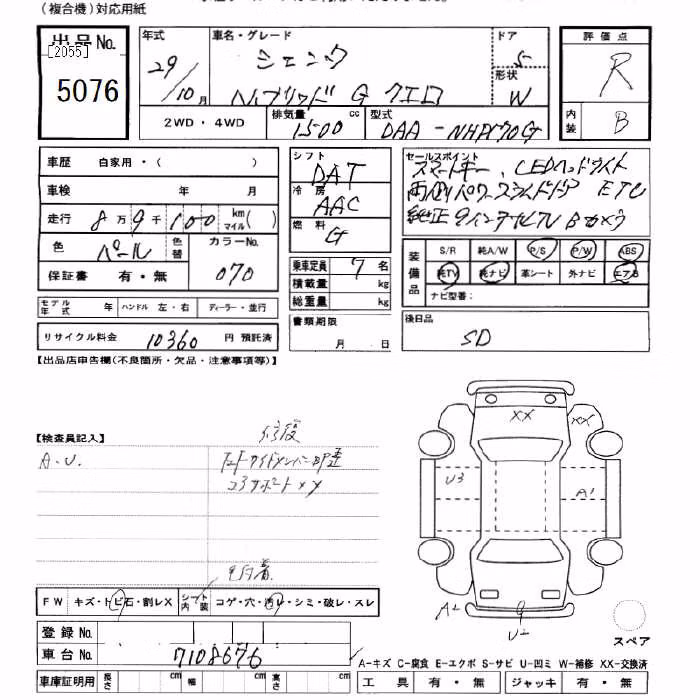 （複合機）対応用紙
出品No.
[2055]
5076
年式
29/10月
車名・グレード
シエンタ
ハイブリッド G クエロ
ドア
5
形状
W
評価点
R
内装
B
2WD・4WD
排気量
1500 cc
型式
DAA-NHP170G
車歴 自家用・（ ）
車検 年 月
走行 8万9千100 km マイル( )
色 パール 色替 カラーNo.
070
保証書 有・無
モデル年式 年 ハンドル 左・右 ディーラー・並行
リサイクル料金 10360 円 預託済
シフト
DAT
冷房
AAC
燃料
G
乗車定員 7 名
積載量 kg
総重量 kg
書類期限
月 日
セールスポイント
スマートキー、LEDヘッドライト
両側パワースライドドア ETC
純正9インチナビTV Bカメラ
装備品
S/R 純A/W P/S P/W ABS
純TV 純ナビ 革シート 外ナビ エアB
ナビ型番：
後日品
SD
【出品店申告欄(不良箇所・欠品・注意事項等)】
【検査員記入】
A.U.
修復
コアサポートXX
FW キズ・トビ石・割レX シート内装 コゲ・穴・汚レ・シミ・破レ・スレ
登録No.
車台No. 7108676
車庫証明用 長さ cm 幅 cm 高さ cm
XX
XX
U3
A1
A2
U2
スペア
A-キズ C-腐食 E-エクボ S-サビ U-凹ミ W-補修 XX-交換済
工具 有・無 ジャッキ 有・無